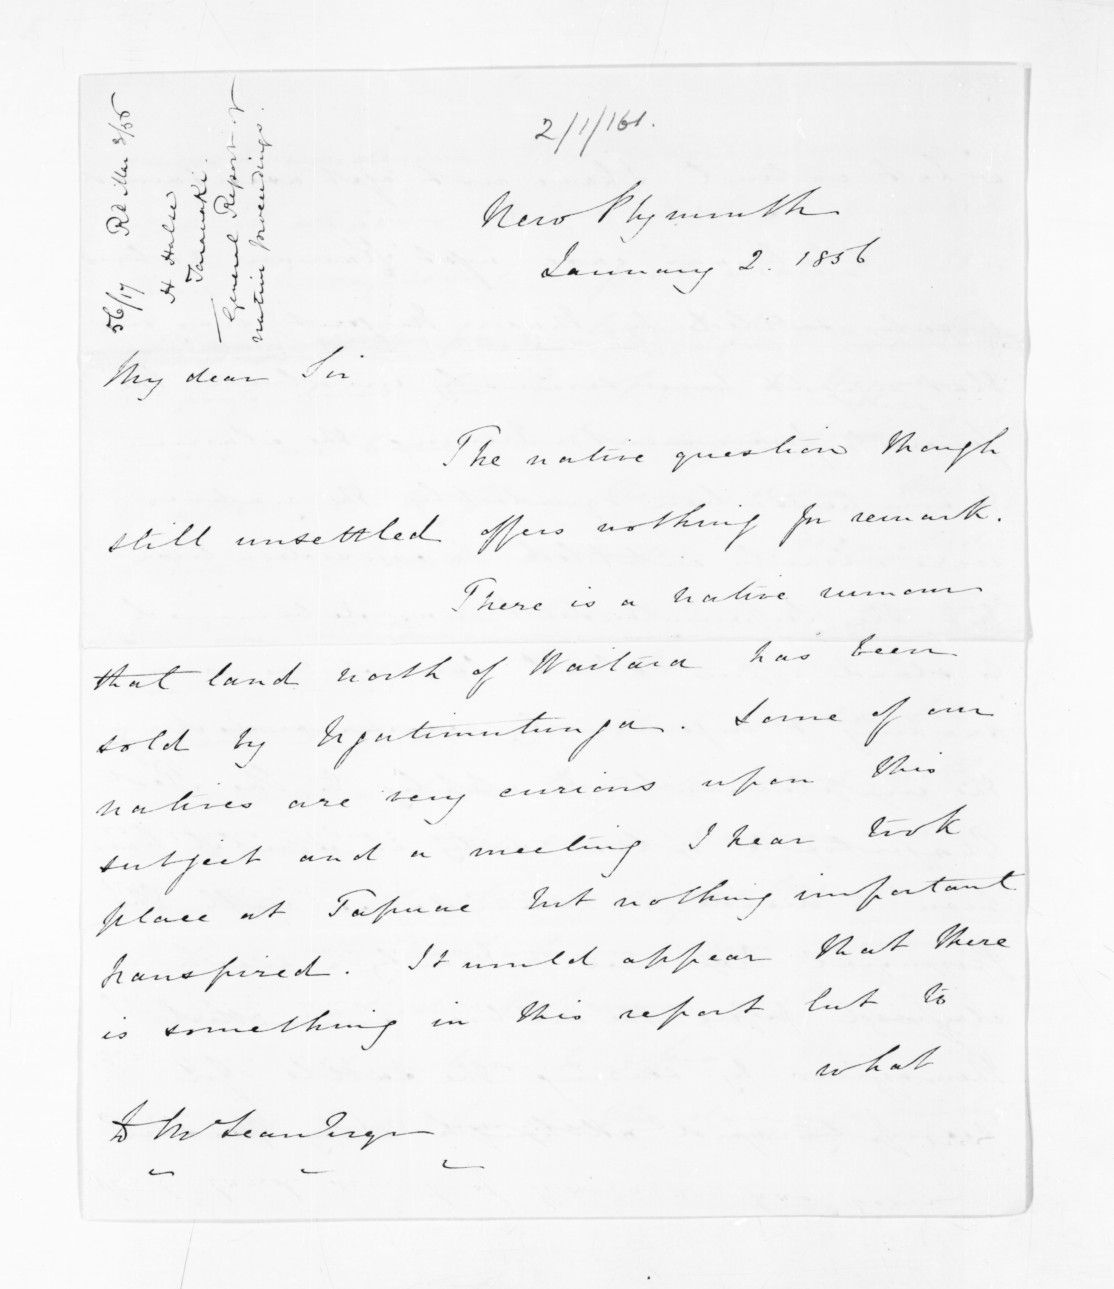 2/1/161.
56/17
H Halse
Taranaki.
General Report of
native proceedings.
New Plymouth
January 2. 1856
My dear Sir
The native question though
still unsettled offers nothing for remark.
There is a native rumour
that land north of Waitara has been
sold by Ngatimutunga. Some of our
natives are very curious upon this
subject and a meeting I hear took
place at Tapuae but nothing important
transpired. It would appear that there
is something in this report but to
what
D McLean Esqr